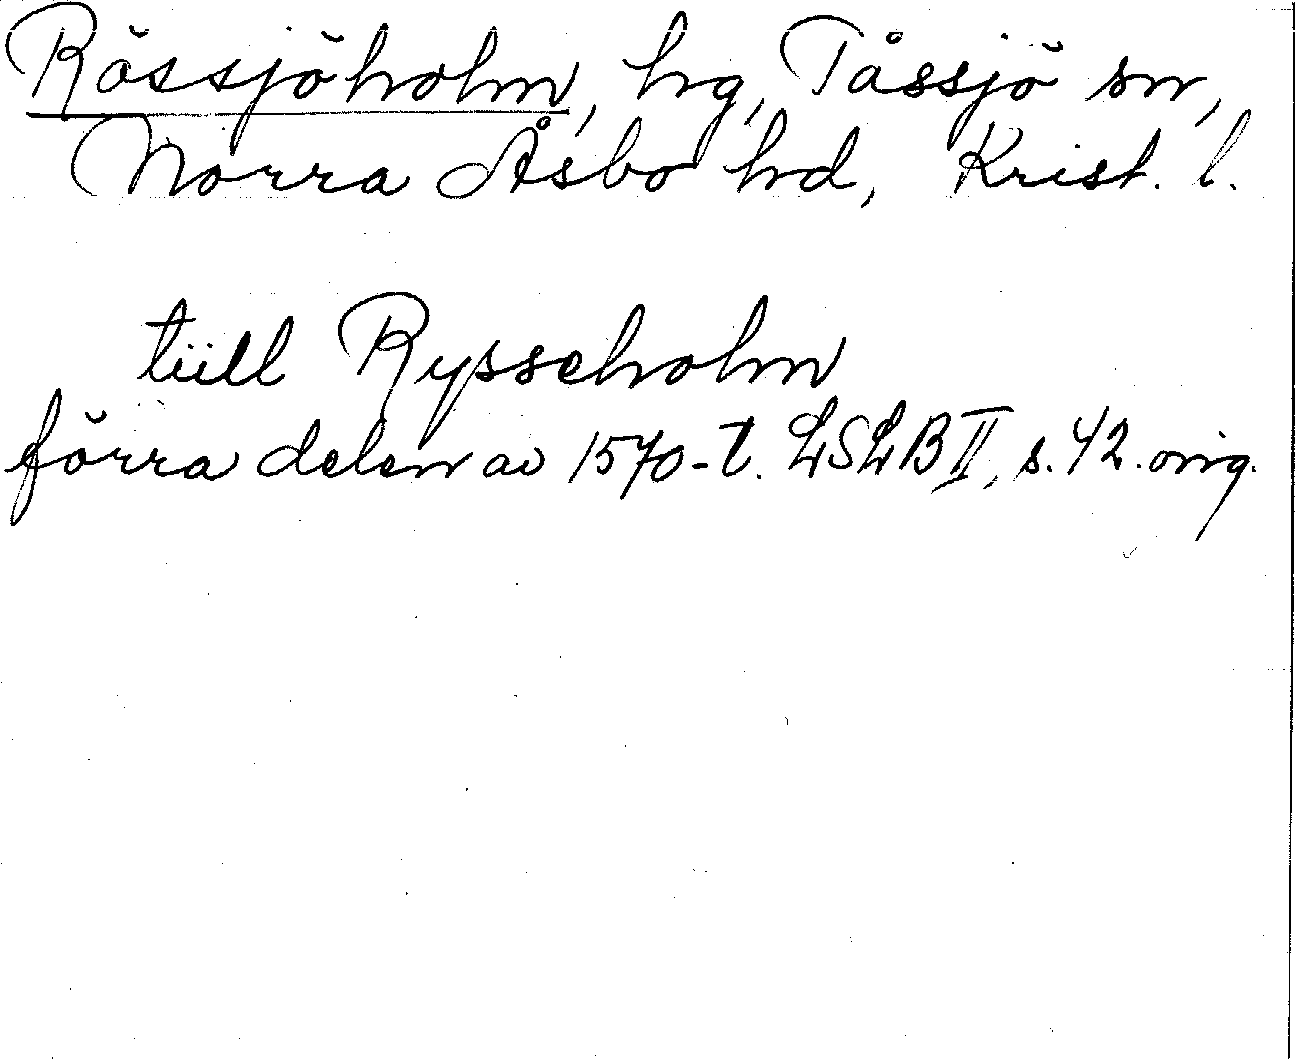 Rössjöholm, hg, Tåssjö sn,
Norra Åsbo hd, Krist. l.
tiill Rysseholm
förra delen av 1570-t. LSLB II, s. 42. orig.